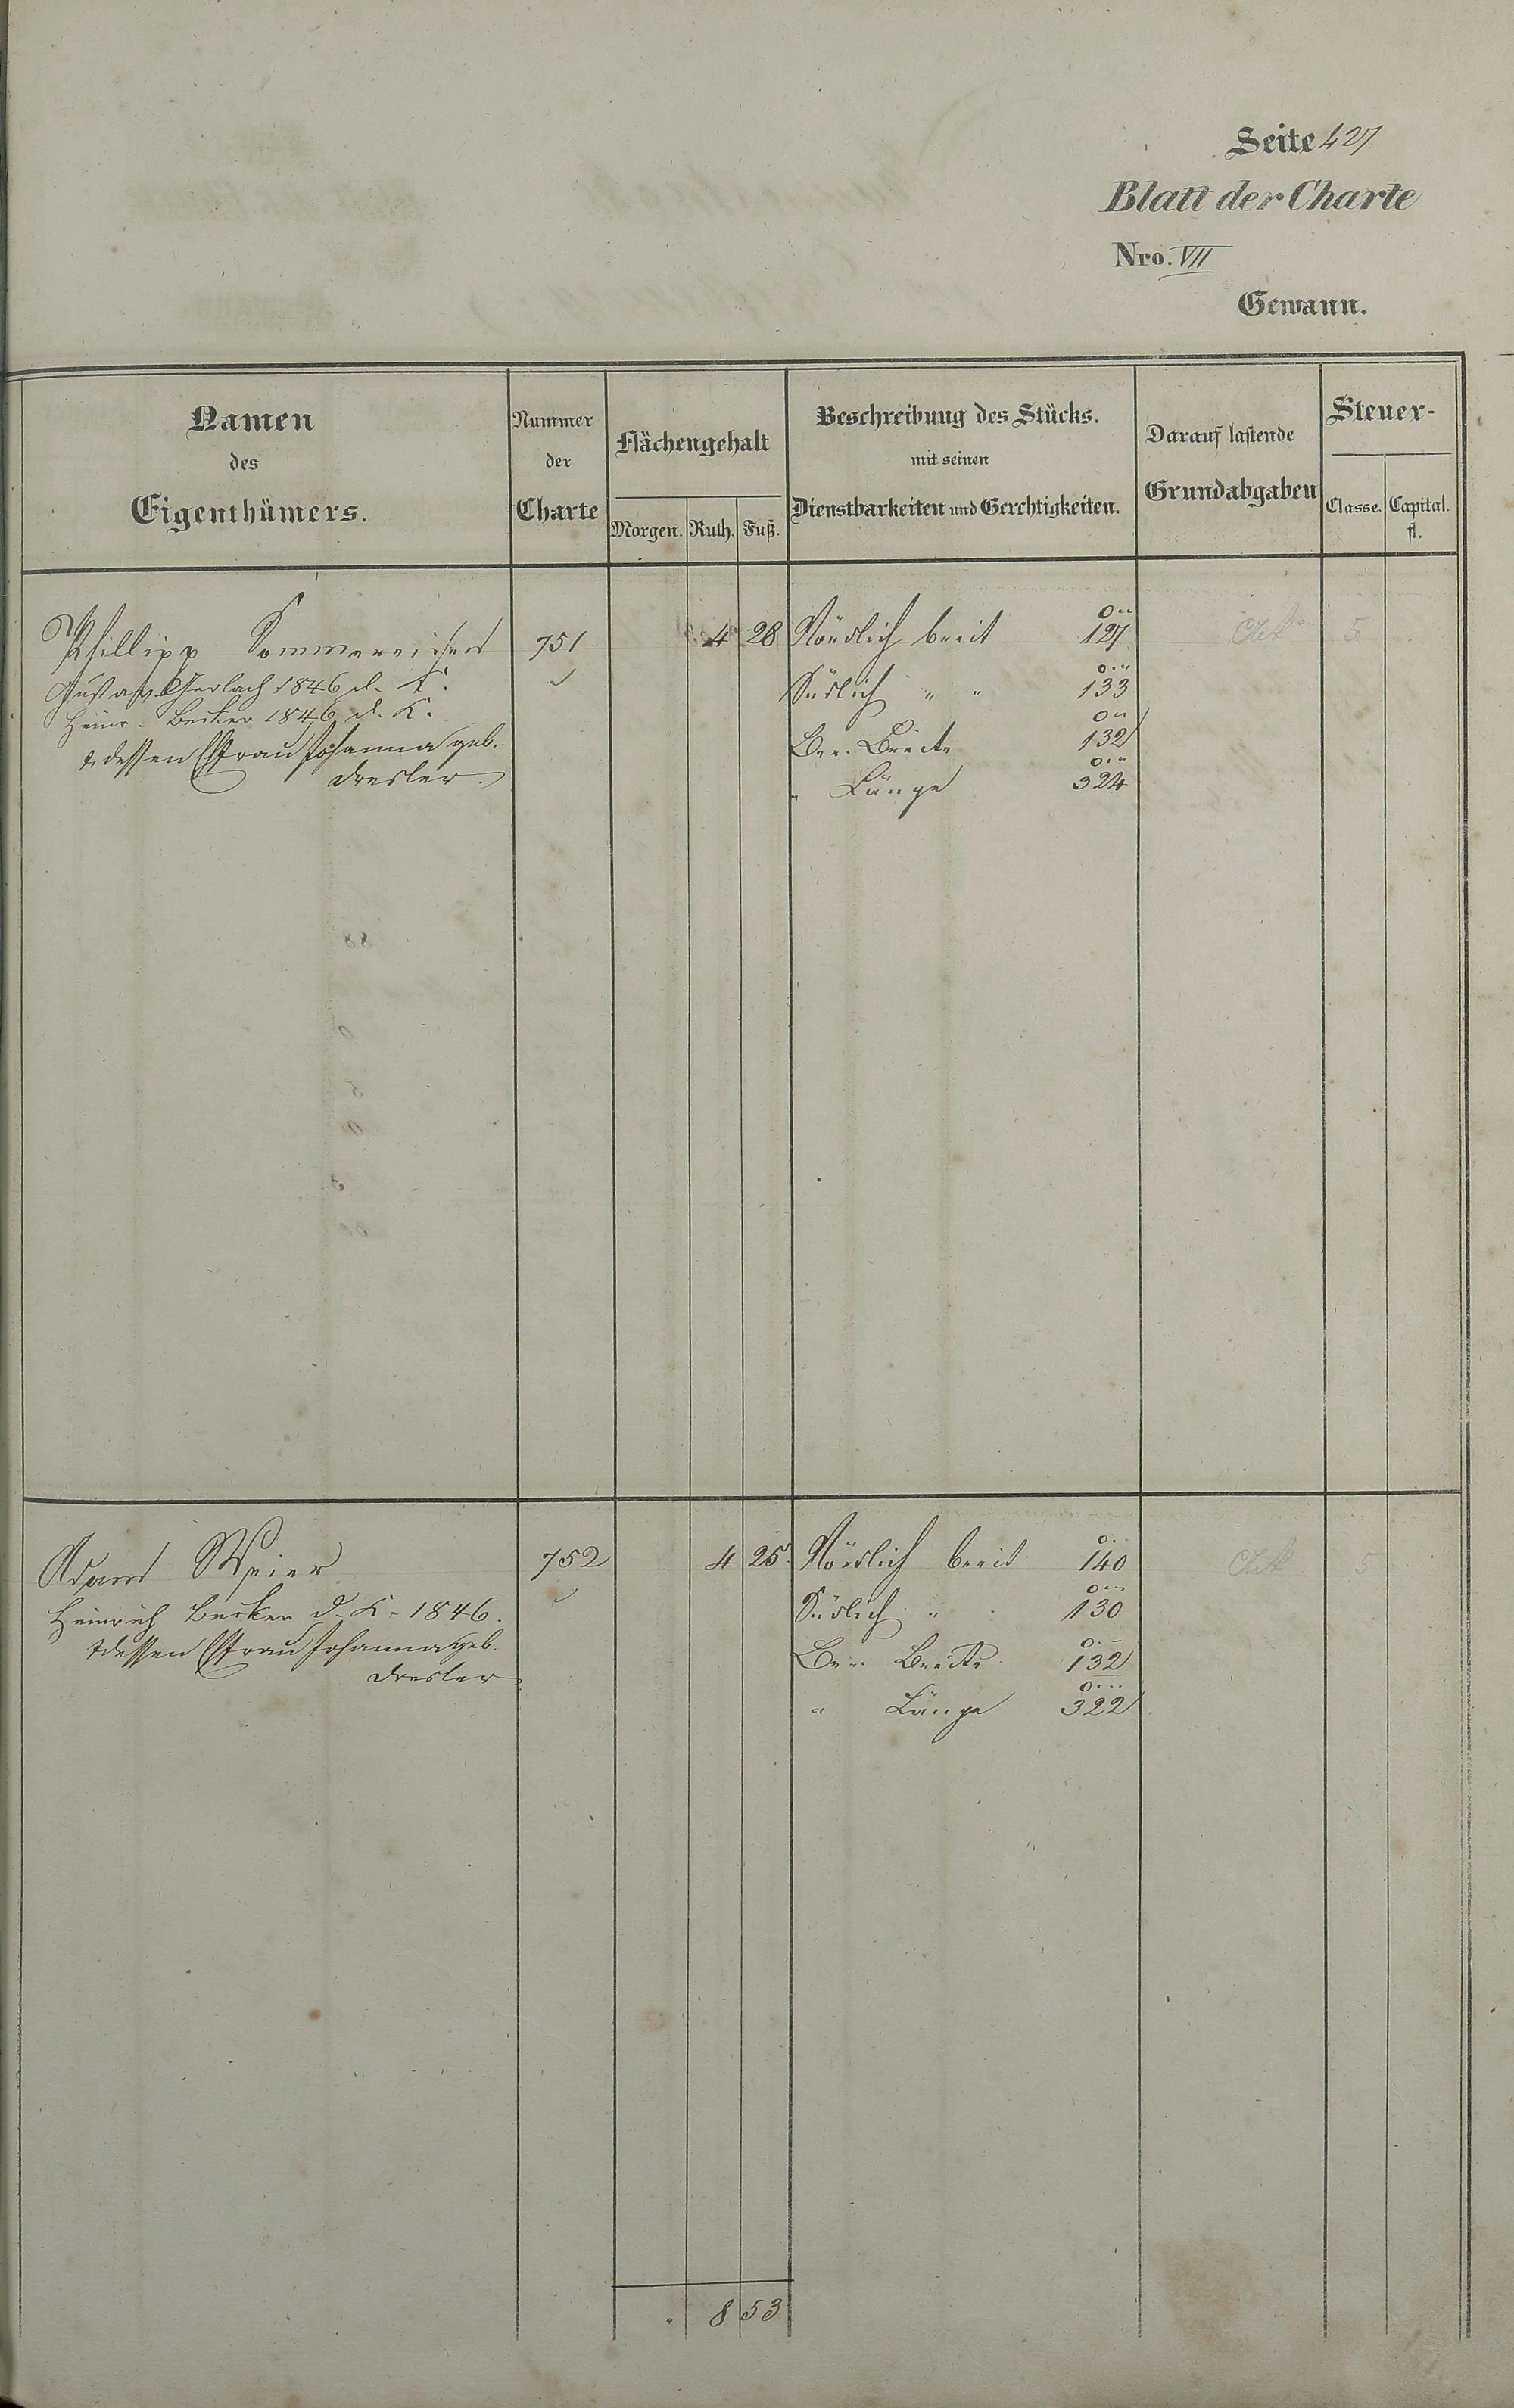 Seite 427
Blatt der Charte
Nro. VII
Gewann.
Namen des Eigenthümers.
Nummer der Charte
Flächengehalt
Morgen. Ruth. Fuß.
Beschreibung des Stücks. mit seinen Dienstbarkeiten und Gerchtigkeiten.
Darauf lastende Grundabgaben
Steuer-
Classe. Capital. fl.
Phillipp 751 4 28 Nördlich breit 127
Gustav Gerlach 1846 d. K. Südlich " " 133
Heinr. Becker 1846 d. K. Ber. Breite 132
& dessen Ehfrau Johanna geb. " Länge 324
Dresler.
Adam Weier 752 4 25 Nördlich breit 140 5
Heinrich Becker d. K. 1846. Südlich " 130
& dessen Ehfrau Johanna geb. Ber. Breite 132
Dresler " Länge 322
" 8 53